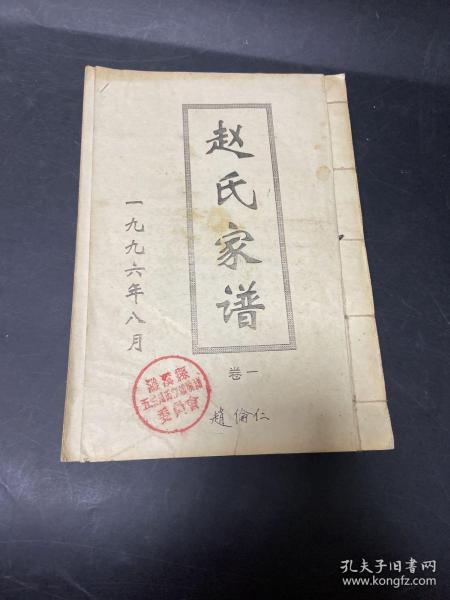 赵氏家谱
卷一
趙倫仁
一九九六年八月
委員會
孔夫子旧书网
www.kongfz.com